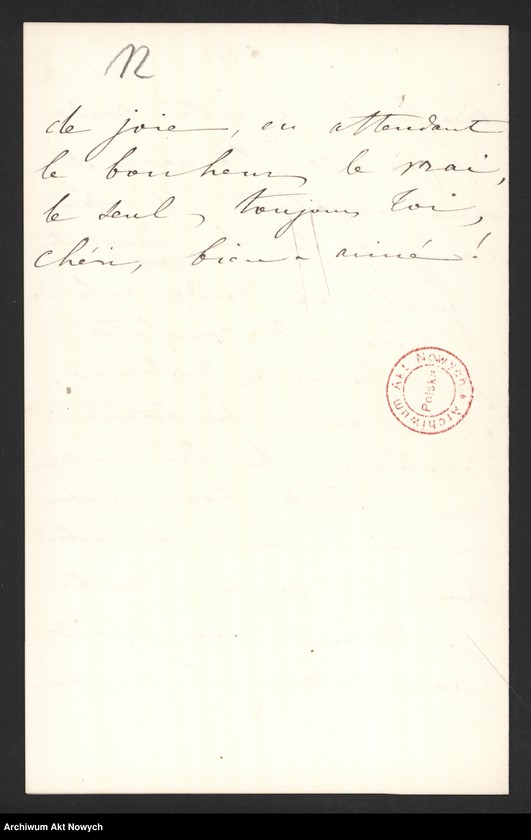 12
de joie, en attendant
le bonheur, le vrai,
le seul, toujours Toi,
chéri, bien-aimé!
Archiwum Akt Nowych *
Polska
Archiwum Akt Nowych